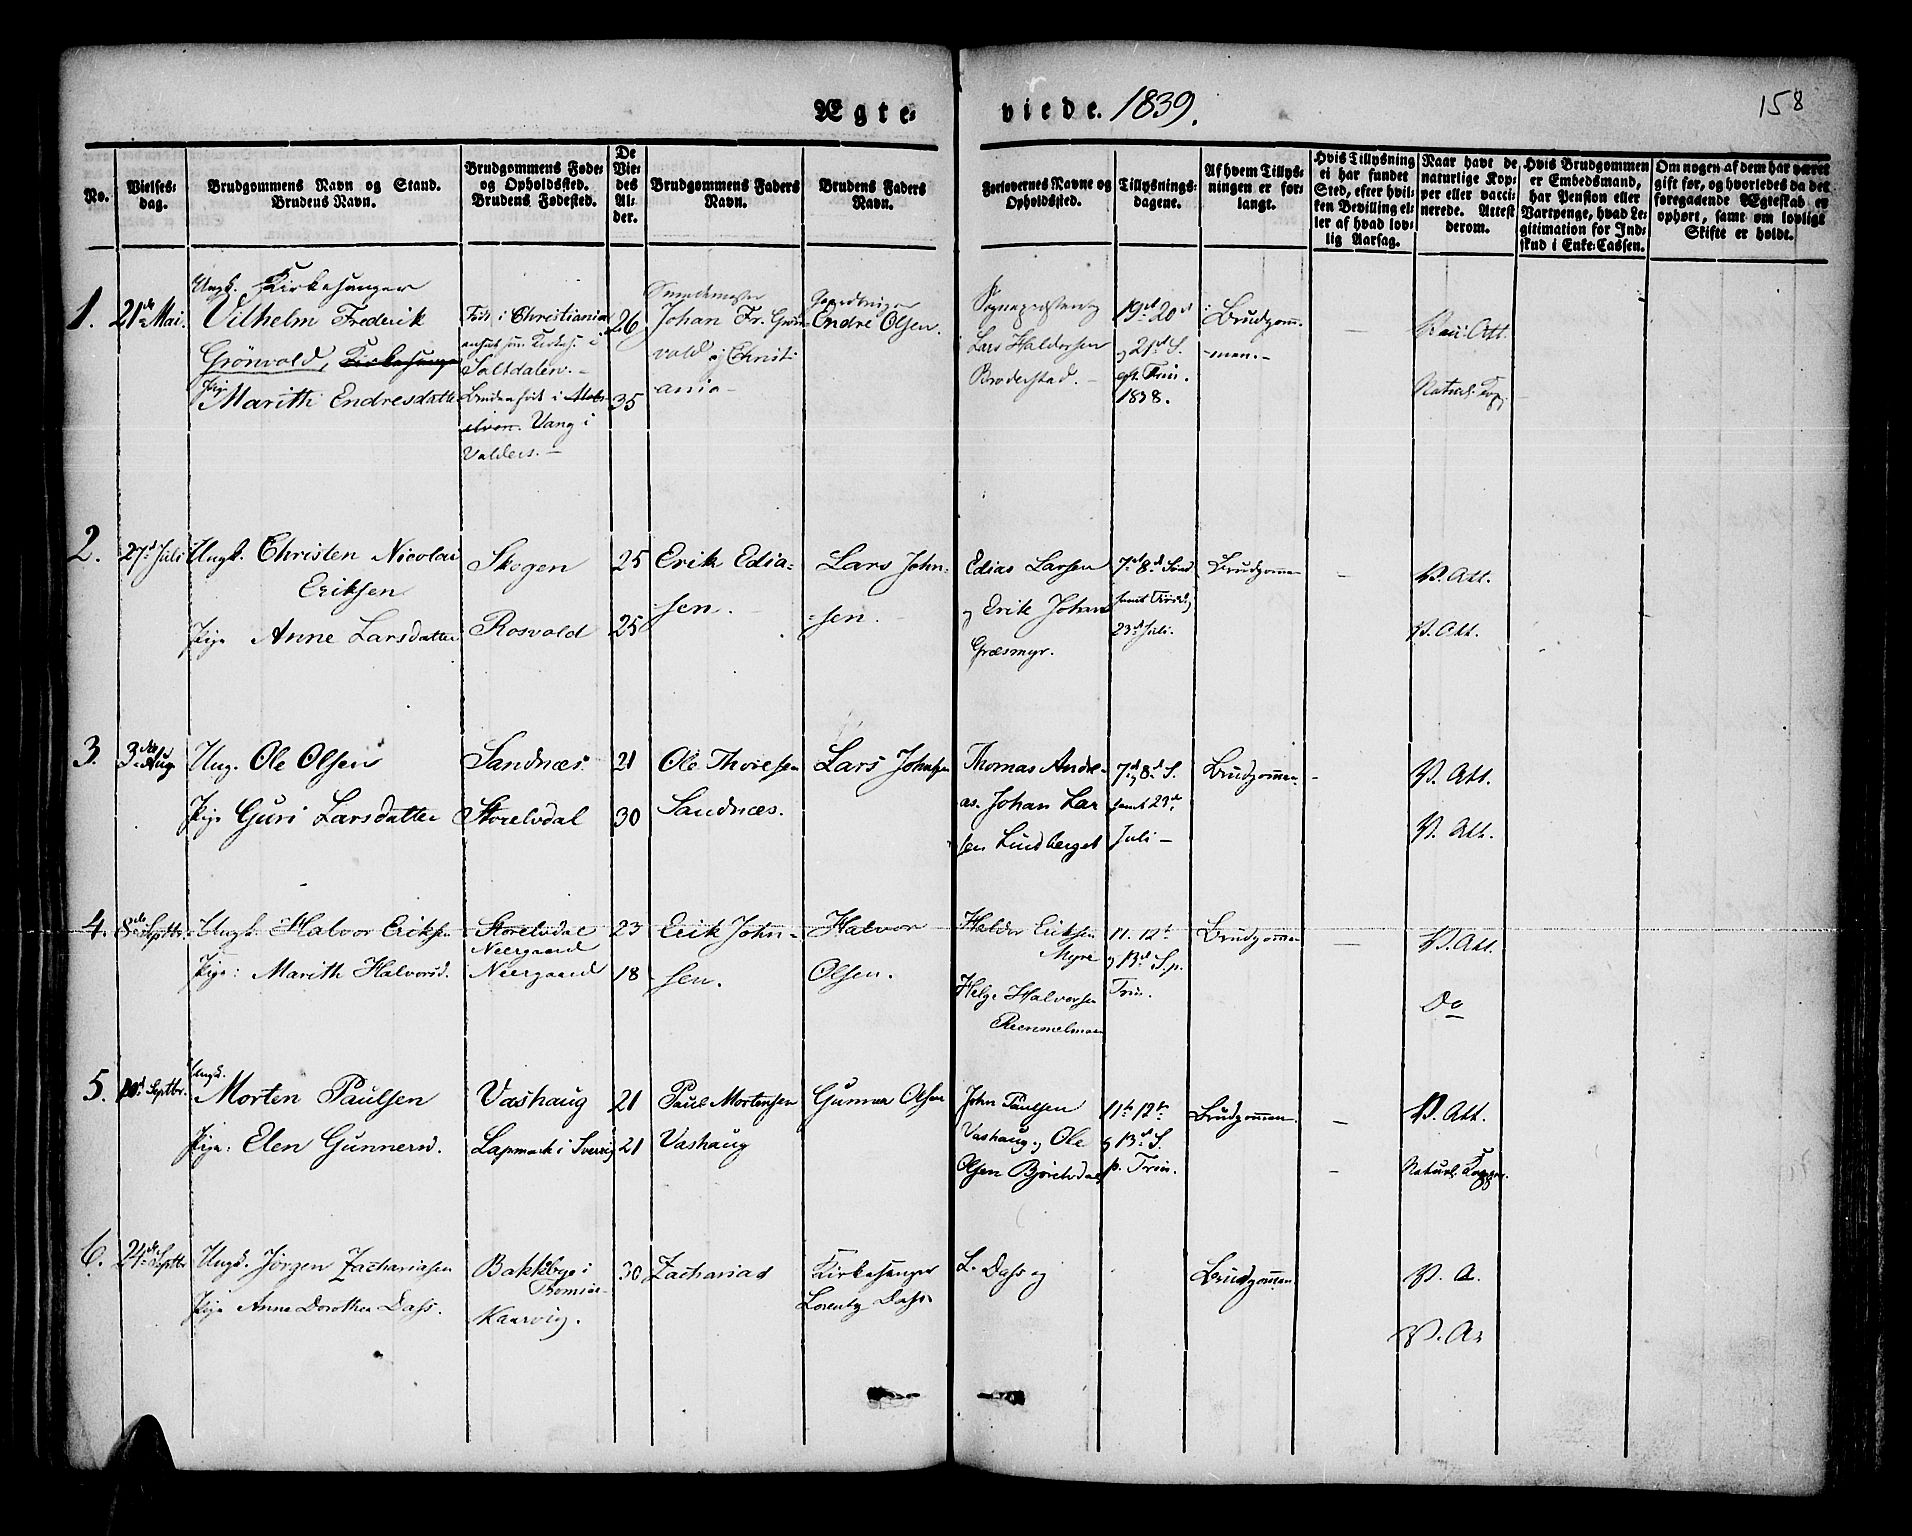 Ægte-
viede. 1839.
158
No.
Vielses-
dag.
Brudgommens Navn og Stand.
Brudens Navn.
Brudgommens Føde-
og Opholdssted.
Brudens Fødested.
De
Vie-
des
Al-
der.
Brudgommens Faders
Navn.
Brudens Faders
Navn.
Forlovernes Navne og
Opholdssted.
Tillysnings-
dagene.
Af hvem Tillys-
ningen er for-
langt.
Hvis Tillysning
ei har fundet
Sted, efter hvil-
ken Bevilling el-
ler af hvad lov-
lig Aarsag.
Naar havt de
naturlige Kop-
per eller vacci-
nerede. Attest
derom.
Hvis Brudgommen
er Embedsmand,
har Pension eller
Vartpenge, hvad Le-
gitimation for Ind-
skud i Enke-Cassen.
Om nogen af dem har været
gift før, og hvorledes da det
foregaaende Ægteskab er
ophørt, samt om lovligt
Skifte er holdt.
1.
21de Mai.
Ungk. Kirkesanger
Vilhelm Frederik
Grönvold, Kirkesanger
Pige Marith Endresdatte
Född i Christiania
ansat som Kirkes. i
Saltdalen.-
Bruden född i
Vang i
Valders.-
26
35
Johan Fr. Grön-
vold i Christi
ania-
Endre Olsen.
Lars Haldorsen
Broderstad.-
19de 20de
og 21de S.
eft. Trin.
1838.
Brudgom-
men.-
-
Vacc: Att.
Naturl. Kop.
2.
27de Juli
Ungk. Christen Nicolai
Eriksen
Pige Anne Larsdatter
Skogen
Rosvold
25
25
Erik Edia-
sen.
Lars John-
sen.
Edias Larsen
og Erik Johans
Græsmyr.
7de 8de Sönd
samt
23de Juli.
Brudgommen
-
V. Att.
V. Att.
3.
3die Aug
Ung. Ole Olsen
Pige Guri Larsdatter
Sandnæs.
Storelvdal
21
30
Ole Thoresen
Sandnæs.
Lars Johnsen
Thomas Andre-
as. Johan Lar
sen Lundberget
7de og 8de S.
samt 23de
Juli-
Brudgommen.
-
V. Att.
V. Att.
4.
8de Septbr.
Ungk. Halvor Eriksen
Pige: Marith Halvorsd.
Storelvdal
Neergaard
Neergaard
23
18
Erik John-
sen.
Halvor
Olsen.
Haldor Eriksen
Myre
Helge Halvorsen
11. 12te
og 13de S. p.
Trin.
Brudgommen
-
V. Att.
Do
5.
10de Septbr.
Ungk.
Morten Paulsen
Pige: Elen Gunnersd.
Vashaug
Lapmark i Sverig
21
21
Paul Mortensen
Vashaug
Gunner Olsen
John Paulsen
Vashaug og Ole
Olsen Björelvdal
11te 12te
og 13de S.
p. Trin.
Brudgommen.
-
-
V. Att.
Naturl. Kopper.
6.
24de Septbr
Ungk. Jörgen Zachariasen
Pige Anne Dorothea Dass.
Bakkbye i
30
Zacharias
Kirkesanger
Lorentz Dass
L. Dass og
Brudgommen.
V. A.
V. A.